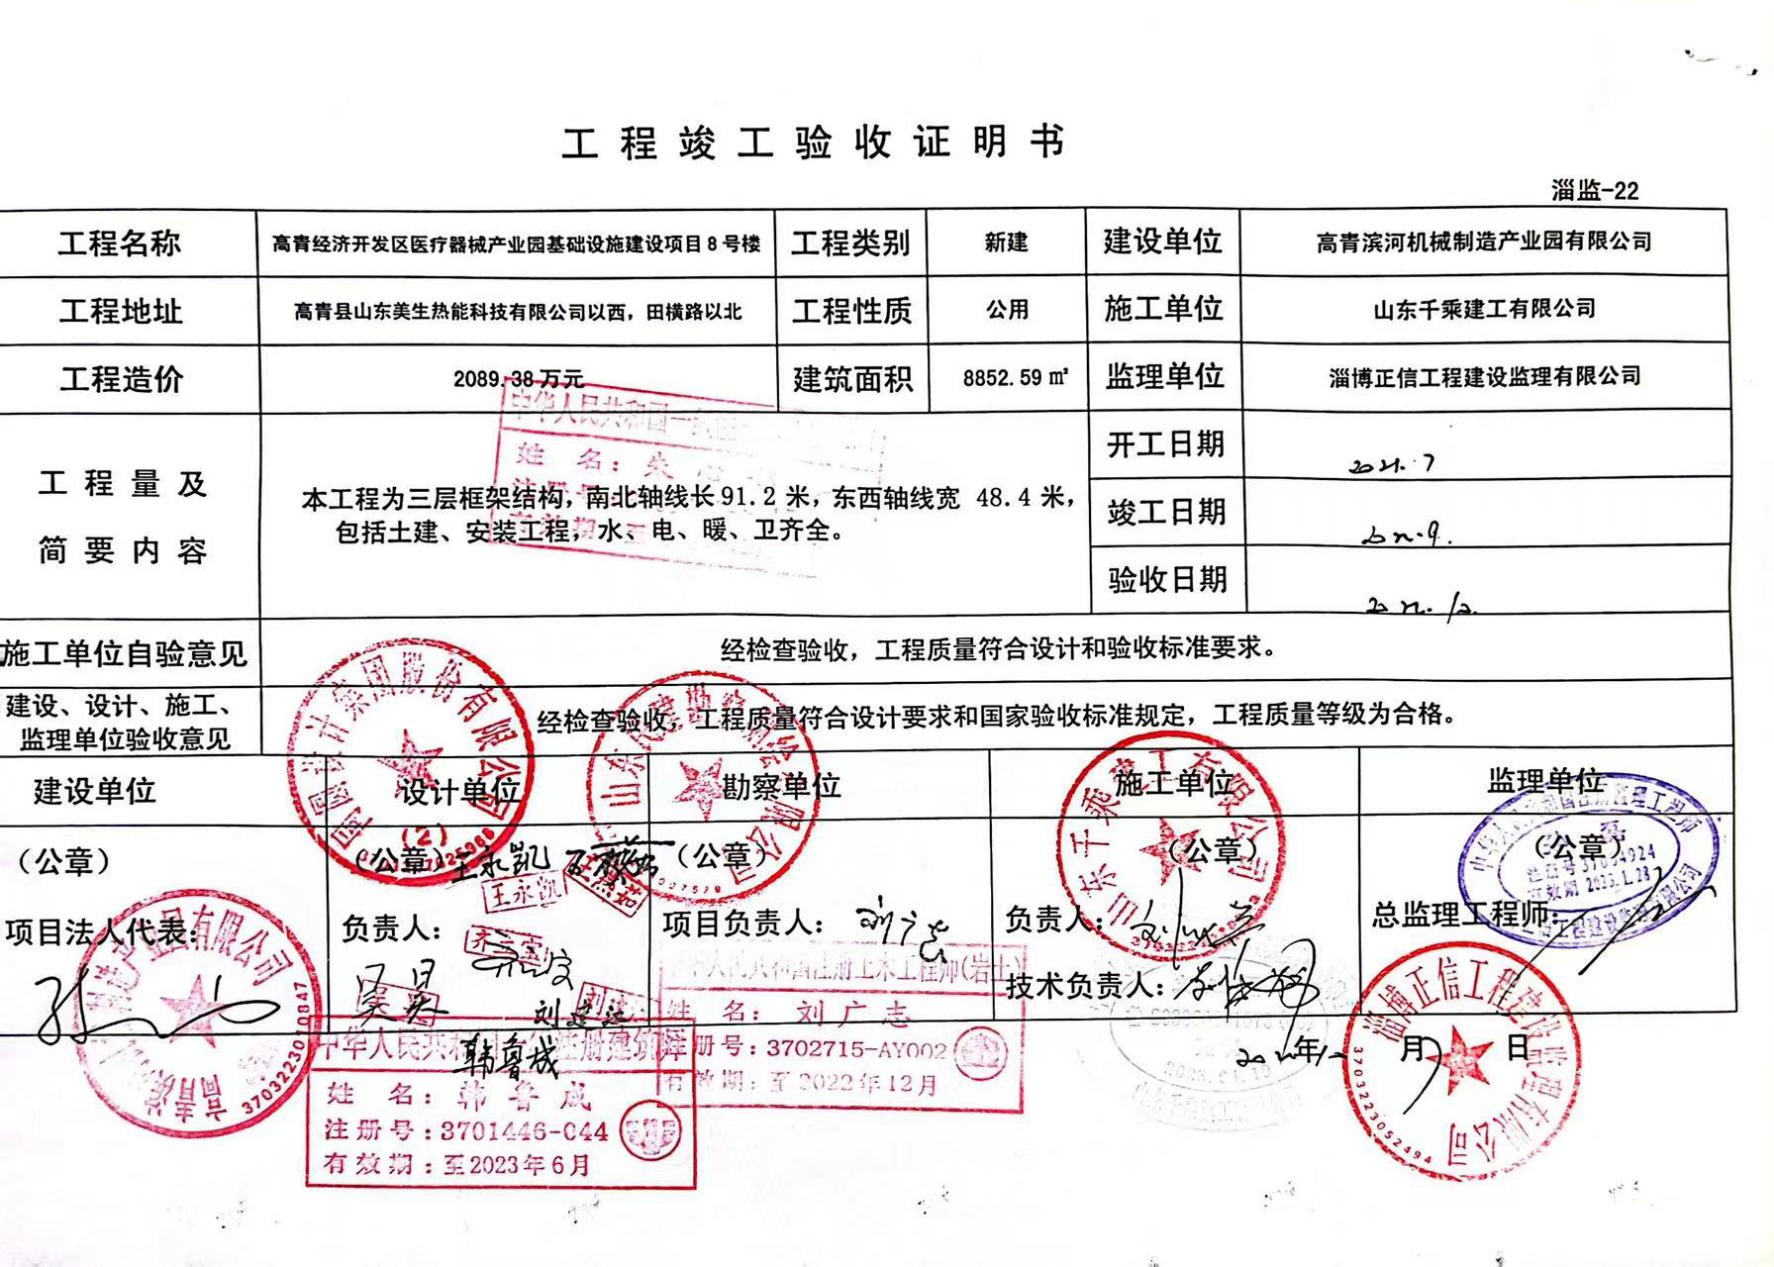 工程竣工验收证明书
淄监-22
工程名称 高青经济开发区医疗器械产业园基础设施建设项目8号楼 工程类别 新建 建设单位 高青滨河机械制造产业园有限公司
工程地址 高青县山东美生热能科技有限公司以西，田横路以北 工程性质 公用 施工单位 山东千乘建工有限公司
工程造价 2089.38万元 建筑面积 8852.59㎡ 监理单位 淄博正信工程建设监理有限公司
中华人民共和国一
姓 名：朱
工程量及
简要内容
本工程为三层框架结构，南北轴线长91.2米，东西轴线宽 48.4 米，
包括土建、安装工程，水、电、暖、卫齐全。
开工日期 2021.7
竣工日期 2022.9.
验收日期 2022.12.
施工单位自验意见 经检查验收，工程质量符合设计和验收标准要求。
建设、设计、施工、
监理单位验收意见
经检查验收，工程质量符合设计要求和国家验收标准规定，工程质量等级为合格。
建设单位 设计单位 勘察单位 施工单位 监理单位
（公章） （公章） （公章） （公章） （公章）
设计集团股份有限公司
（2）
王永凯
王永凯
王燕茹
山东千乘建工有限公司
注册号37014924
有效期2023.1.28
项目法人代表： 负责人： 项目负责人：刘广志 负责人： 总监理工程师：
齐云雯
吴昊
刘建
技术负责人：
产业园有限公司
3703223010847
韩鲁成
中华人民共和 注册建筑师
姓 名：韩鲁成
注册号：3701446-044
有效期：至2023年6月
中华人民共和国注册土木工程师(岩土)
姓 名：刘广志
注册号：3702715-AY002
有效期：至2022年12月
2022年12月 日
淄博正信工程建设监理有限公司
3703223052494